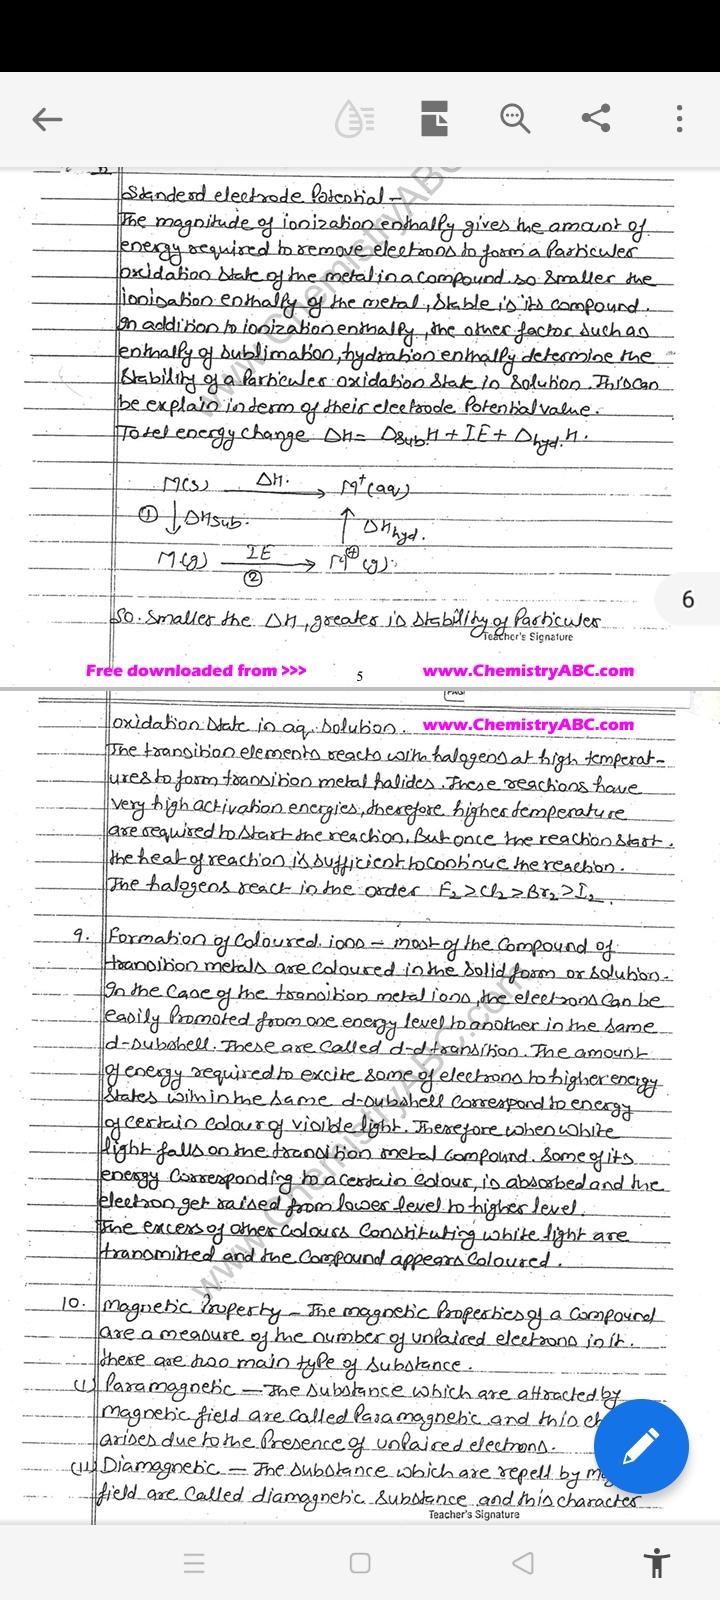 Standerd electrode Potential -
The magnitude of ionization enthalpy gives the amount of
energy required to remove electrons to form a Particuler
oxidation state of the metal in a compound. so smaller the
ionisation enthalpy of the metal, stable is its compound.
In addition to ionization enthalpy, the other factor such as
enthalpy of sublimation, hydration enthalpy determine the
stability of a Particuler oxidation state in solution. This can
be explain in term of their electrode Potential value.
Total energy change ΔH = ΔSub.H + IE + Δhyd.H.
M(s) ΔH. M+(aq)
① ΔHSub. ΔHhyd.
M(g) IE M+(g)
②
6
So. Smaller the ΔH, greater is stability of Particuler
Teacher's Signature
Free downloaded from >>> 5 www.ChemistryABC.com
oxidation state in aq. solution. www.ChemistryABC.com
The transition elements reacts with halogens at high temperat-
ures to form transition metal halides. These reactions have
very high activation energies, therefore higher temperature
are required to start the reaction. But once the reaction start.
the heat of reaction is sufficient to continue the reaction.
The halogens react in the order F2 > Cl2 > Br2 > I2.
9. Formation of Coloured ions - most of the compound of
transition metals are coloured in the solid form or solution.
In the case of the transition metal ions, the electrons can be
easily Promoted from one energy level to another in the same
d-subshell. These are called d-d transition. The amount
of energy required to excite some of electrons to higher energy
states within the same d-subshell correspond to energy
of certain colour of visible light. Therefore when white
light falls on the transition metal compound. some of its
energy corresponding to a certain colour, is absorbed and the
electron get raised from lower level to higher level.
The excess of other colours constituting white light are
transmitted and the compound appears coloured.
10. Magnetic Property - The magnetic Properties of a compound
are a measure of the number of unpaired electrons in it.
there are two main type of substance.
(i) Paramagnetic - The substance which are attracted by
magnetic field are called Paramagnetic and this
arises due to the Presence of unpaired electrons.
(ii) Diamagnetic - The substance which are repell by
field are called diamagnetic substance and this character
Teacher's Signature
www.ChemistryABC.com